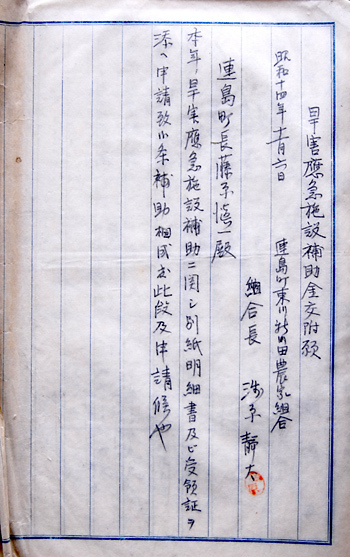 旱害應急施設補助金交附願
昭和十四年十一月六日
連島町東川新田農家組合
組合長 渋谷静太
連島町長藤原慎一殿
本年ノ旱害應急施設補助ニ関シ別紙明細書及ビ受領証ヲ
添ヘ申請致候条補助相成度此段及申請候也